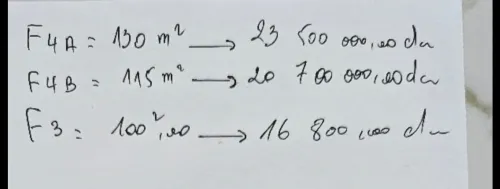 F4A = 130 m² → 23 500 000,00 da
F4B = 115 m² → 20 700 000,00 da
F3 = 100²,00 → 16 800,000 da